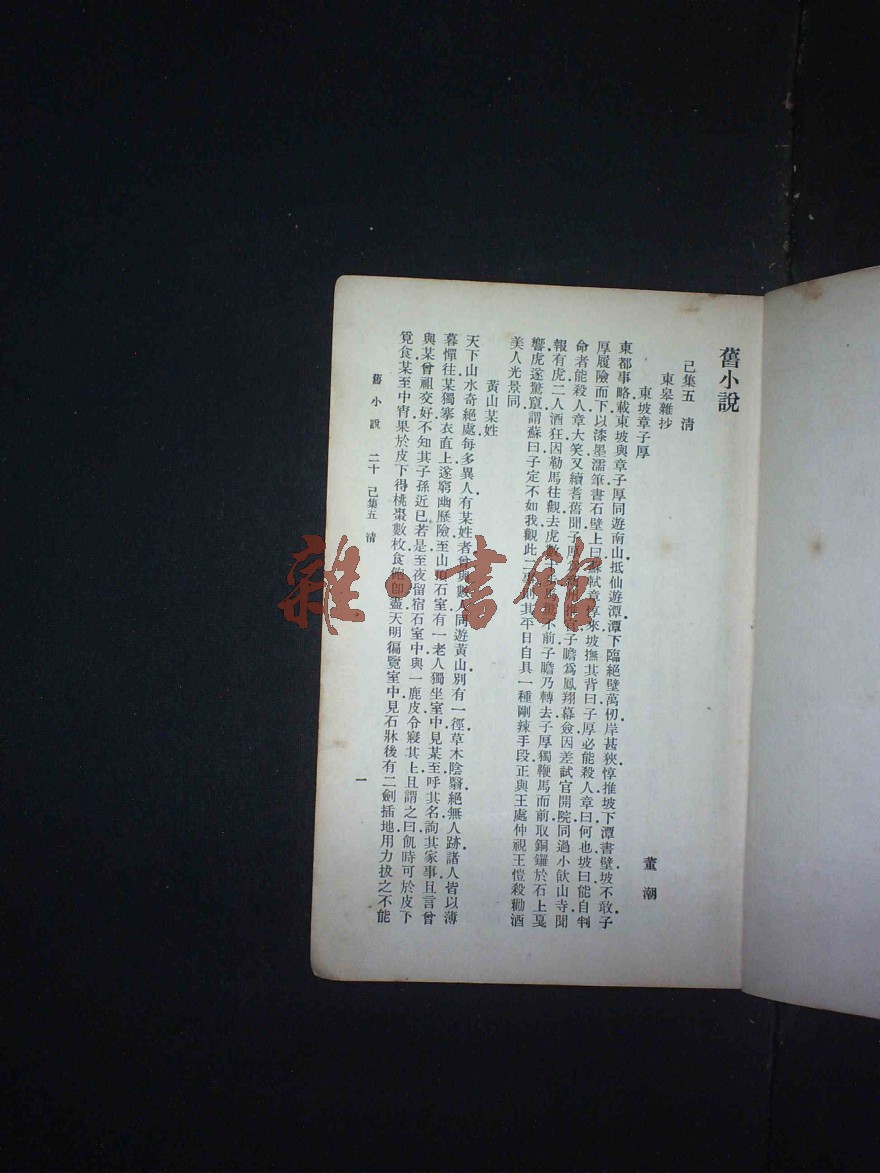 舊小說
己集五　清
東皋雜抄
東坡章子厚　董潮
東都事略載東坡與章子厚同遊南山抵仙遊潭潭下臨絕壁萬仞岸甚狹惇推坡下潭書壁坡不敢子
厚履險而下以漆墨濡筆書石壁上曰蘇軾章惇來坡撫其背曰子厚必能殺人章曰何也坡曰能自判
命者能殺人章大笑又續耆舊聞子厚 子瞻爲鳳翔幕僉因差試官開院同過小飲山寺聞
報有虎二人酒狂因勒馬往觀去虎數十步 不前子瞻乃轉去子厚獨鞭馬而前取銅鑼於石上戛
響虎遂驚竄謂蘇曰子定不如我觀此二 則其平日自具一種剛辣手段正與王處仲視王愷殺勸酒
美人光景同
黃山某姓
天下山水奇絕處每多異人有某姓者曾與數人同遊黃山別有一徑草木陰翳絕無人跡諸人皆以薄
暮憚往某獨搴衣直上遂窮幽歷險至山 石室有一老人獨坐室中見某至呼其名詢其家事且言曾
與某曾祖交好不知其子孫近已若是至夜留宿石室中與一鹿皮令寢其上且謂之曰飢時可於皮下
覓食某至中宵果於皮下得桃棗數枚食飽卽盡天明徧覽室中見石牀後有二劍插地用力拔之不能
舊小說　二十　己集五　清
一
雜·書館